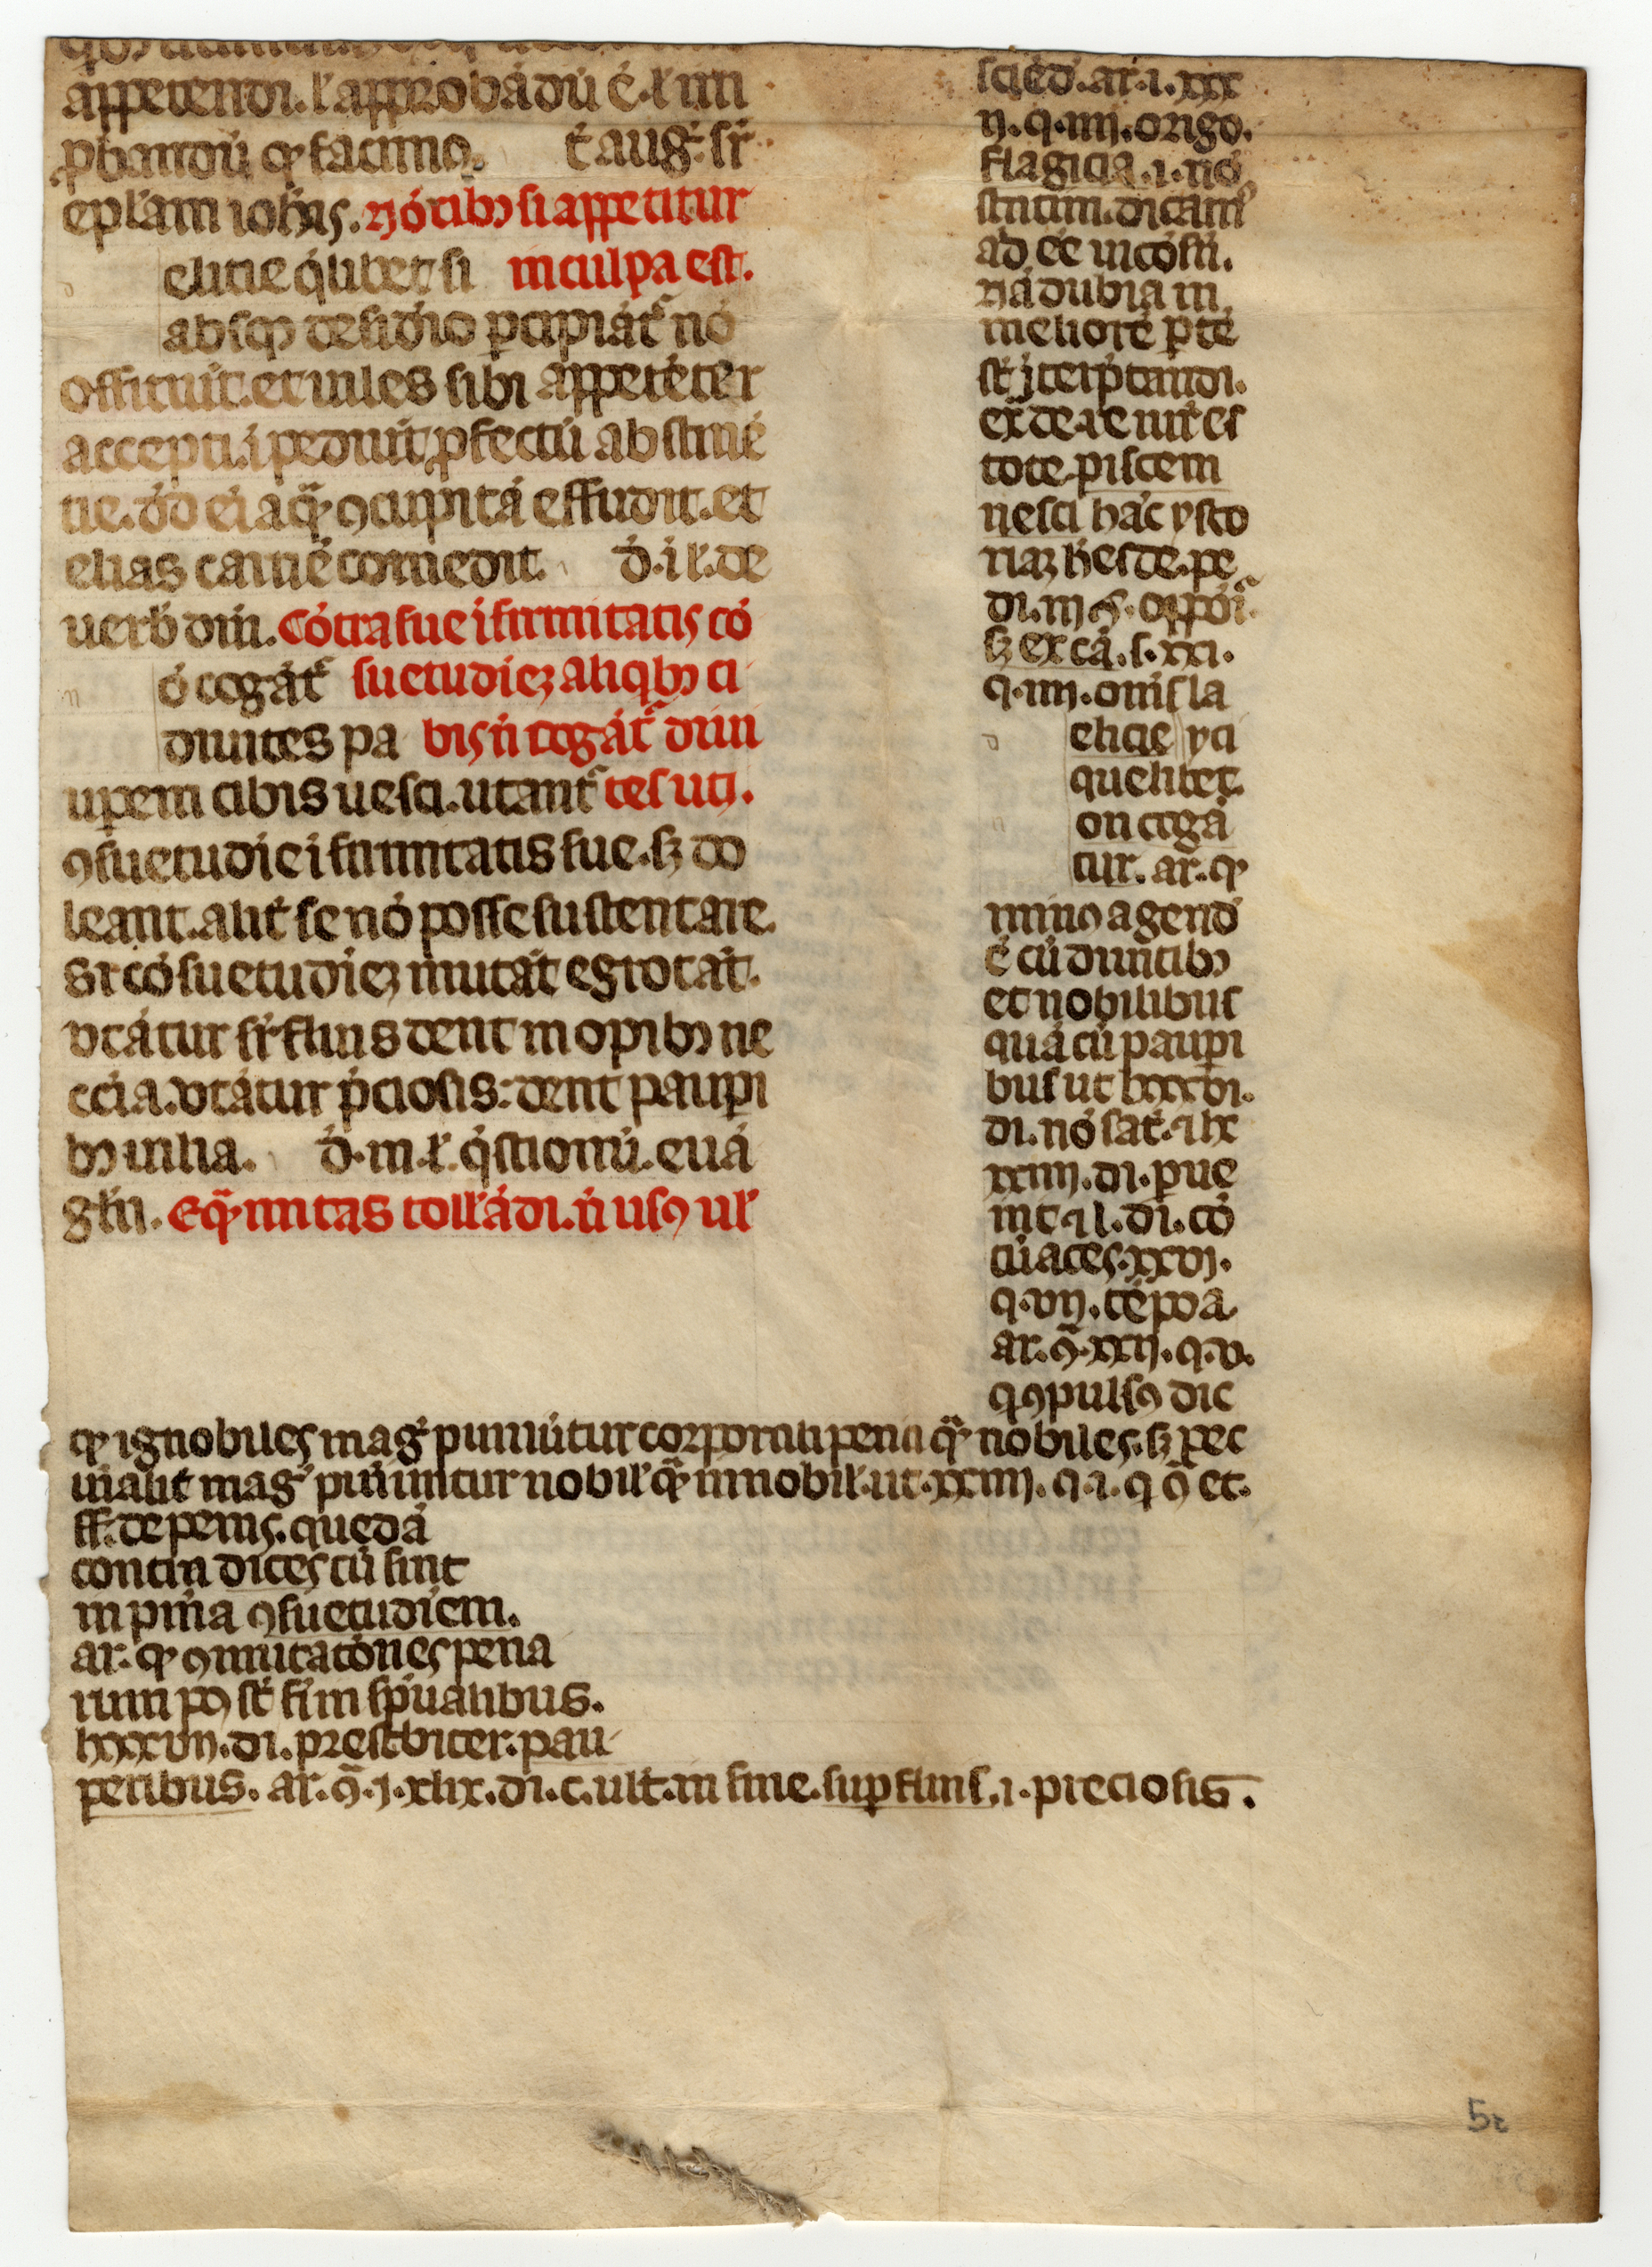 appetendi. ł approbādū ē. ł im
ꝓbandū ꝙ facimꝰ. Ɫ aug̾. sr̄
epłam ioħis. Nō cibꝫ si appetitur
elitie q̄libet si in culpa est.
absqꝫ desid̾io ꝑcipiāt᷑ nō
officiūt. et uiles sibi appetēter
accepti. īpediūt ꝓfectū abstinē
tie. dđ ei aqᷓ ꝯcupitā effudit. et
elias carnē comedit. đ. ī ł. de
uerb̾ dn̄i. Cōtra sue ifirmitatis cō
ō cogāt᷑ suetudīeꝫ aliqbꝫ ci
diuites pa bis n̄ cogāt᷑ diui
uꝑem cibis uesci. utant᷑ tes uti.
ꝯsuetudīe ifirmitatis sue. sꝫ do
leant. alit̾ se nō posse sustentare.
Si cōsuetudīeꝫ mutāt egrotāt.
vtātur sr̄fluis dent inopibꝫ ne
ccīa. vtātur p̄ciosis: dent pauꝑi
bꝫ uilia. đ. in ł. q̄stionū. euā
głii. Eqᷓnitas tollādi. n̄ usꝰ uł
sciēd̾. ar. i. xxx
ij. q. iiij. origo.
flagicia. i. nō
statim. dicamꝰ
ad ēe incōsti.
nā dubia in
meliorē ꝑtē
st̄ īterp̄tandi.
ex̄ de. re iur̄ es
tote. piscem
nesci hāc ysto
riaꝫ ħes de. pe
di. iij §. oppōi᷑.
sꝫ ex cā. s. xxi.
q. iiij. oīnis ia
elicie yci
quelibet.
on cogā
tur. ar. ꝙ
minꝰ agend̾
ē cū diuitibꝫ
et nobilibus
quā cū pauꝑi
bus ut lxxxvi.
di. nō sat̾. ⁊ lx
xxiiij. di. ꝑue
nit ⁊ l. di. cō
tūaces. xxvi.
q. vij. tēpora
ar. ꝯ̄. xxij. q. v.
q ꝯpulsꝰ dic
ꝙ ignobiles mag̾ puniūtur corporali pena qᷓ nobiles. sꝫ pec
uīalit̾ mag̾ puniuntur nobił qᷓ innobił. ut. xxiiij. q. i. q ꝯ̄ et.
ff. de penis. quedā
contin dices cū sint
in pm̄a ꝯsuetudīem.
ar. ꝙ ꝯmutatōnes pena
rum pꝰ st̄ fi in sp̄ualibus.
lxxxvij. di. prestbiter. pau
peribus. ar. ꝯ̄. j. xlix. di. c. ult. in fine. suꝑfluis. i. preciosis.
5r